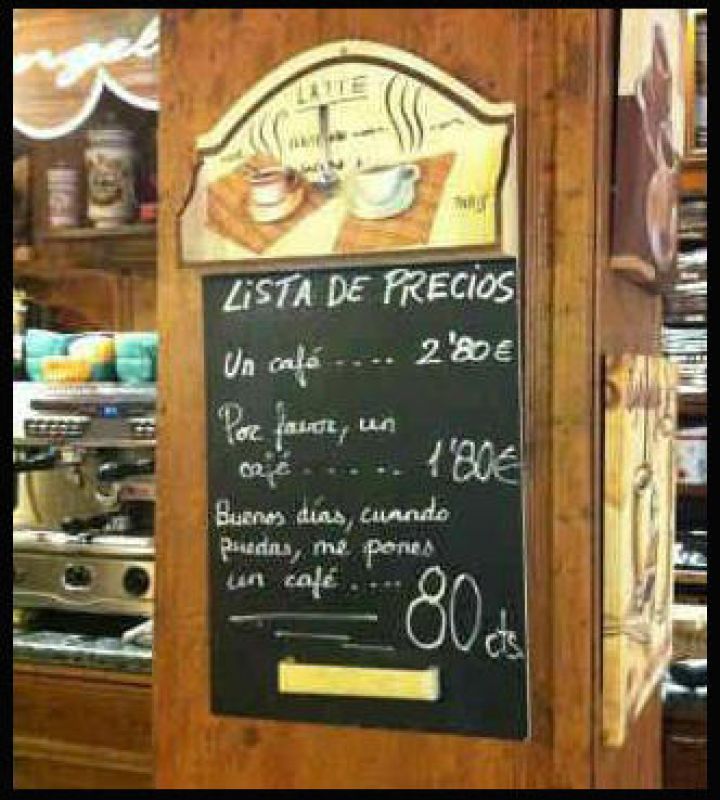 LATTE
LISTA DE PRECIOS
Un café .... 2'80€
Por favor, un
café ...... 1'80€
Buenos días, cuando
puedas, me pones
un café .... 80 cts